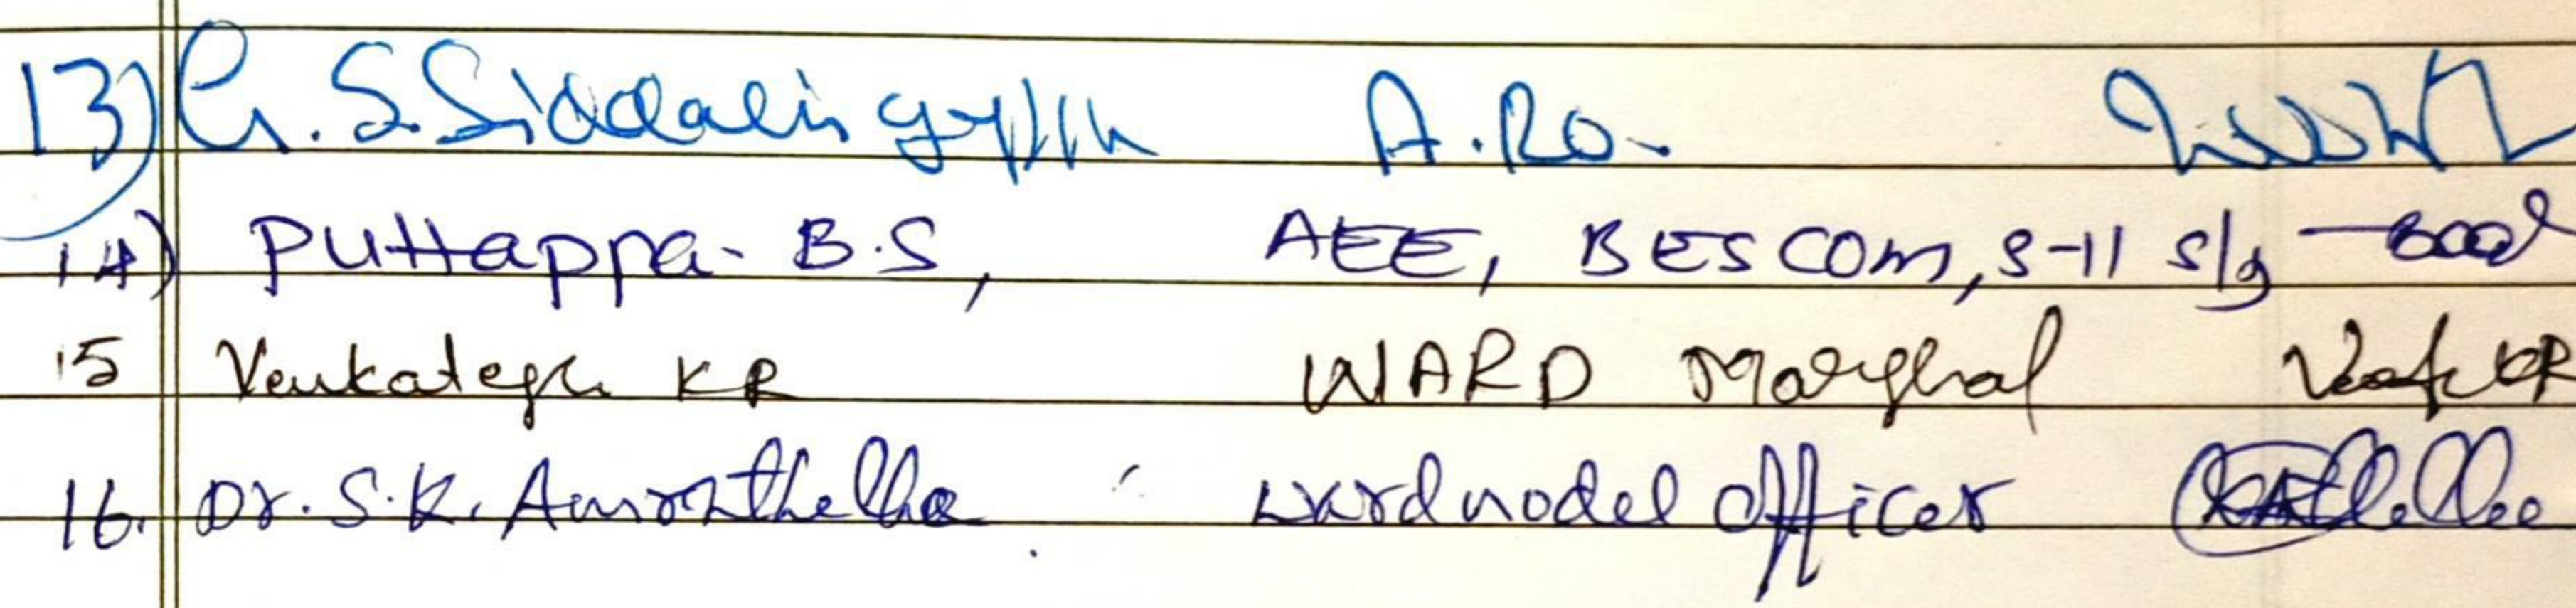 13) G. S. Siddalingyya A.Ro.
14) PUttappa- B.S, AEE, BESCOM, S-11 S/g
15 Venkatesh KR WARD Marshal
16. Dr. S.K. Amonthella Ward nodel officer